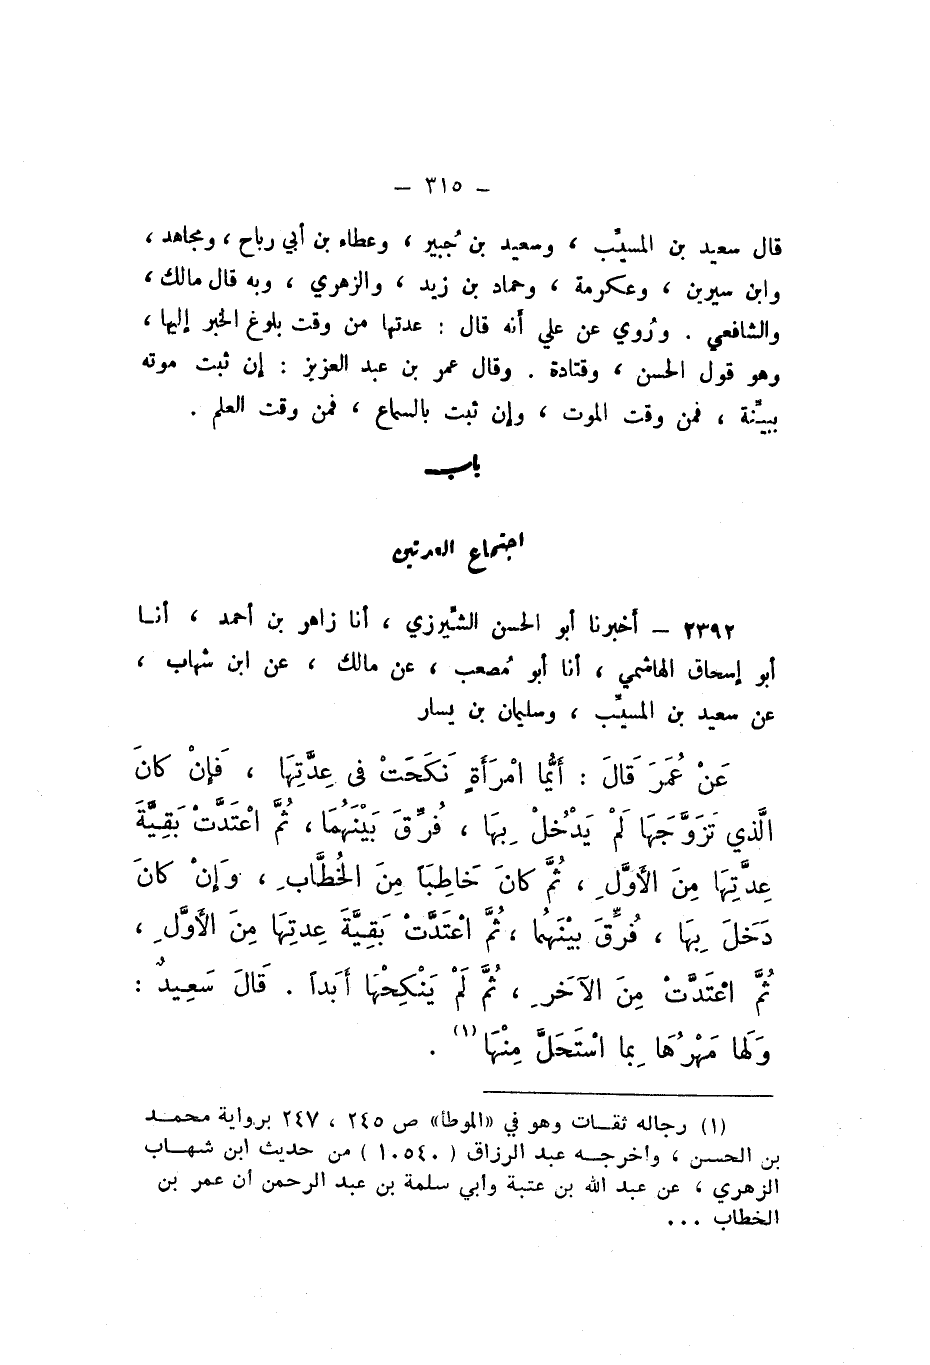 — ٣١٥ —
قال سعيد بن المسيِّب ، وسعيد بن جُبير ، وعطاء بن أبي رباح ، ومجاهد ،
وابن سيرين ، وعكرمة ، وحماد بن زيد ، والزهري ، وبه قال مالك ،
والشافعي . ورُوي عن علي أنه قال : عدتها من وقت بلوغ الخبر إليها ،
وهو قول الحسن ، وقتادة . وقال عمر بن عبد العزيز : إن ثبت موته
ببيِّنة ، فمن وقت الموت ، وإن ثبت بالسماع ، فمن وقت العلم .
باب
اجتماع العدتين
٢٣٩٢ – أخبرنا أبو الحسن الشِّيرزي ، أنا زاهر بن أحمد ، أنا
أبو إسحاق الهاشمي ، أنا أبو مُصعب ، عن مالك ، عن ابن شهاب ،
عن سعيد بن المسيِّب ، وسليمان بن يسار
عَنْ عُمَرَ قَالَ : أَيُّما امْرَأَةٍ نَكَحَتْ في عِدَّتِهَا ، فَإِنْ كَانَ
الَّذي تَزَوَّجَهَا لَمْ يَدْخُلْ بِهَا ، فُرِّقَ بَيْنَهُمَا ، ثُمَّ اعْتَدَّتْ بَقِيَّةَ
عِدَّتِهَا مِنَ الأَوَّلِ ، ثُمَّ كَانَ خَاطِبَاً مِنَ الخُطَّابِ ، وَإِنْ كَانَ
دَخَلَ بِهَا ، فُرِّقَ بَيْنَهُما ، ثُمَّ اعْتَدَّتْ بَقِيَّةَ عِدتِهَا مِنَ الأَوَّلِ ،
ثُمَّ اعْتَدَّتْ مِنَ الآخَرِ ، ثُمَّ لَمْ يَنْكِحْهَا أَبَداً . قَالَ سَعِيدٌ :
وَلَها مَهْرُهَا بِما اسْتَحَلَّ مِنْهَا (١) .
(١) رجاله ثقات وهو في «الموطأ» ص ٢٤٥ ، ٢٤٧ برواية محمد
بن الحسن ، وأخرجه عبد الرزاق ( ١٠٥٤٠ ) من حديث ابن شهاب
الزهري ، عن عبد الله بن عتبة وأبي سلمة بن عبد الرحمن أن عمر بن
الخطاب ...